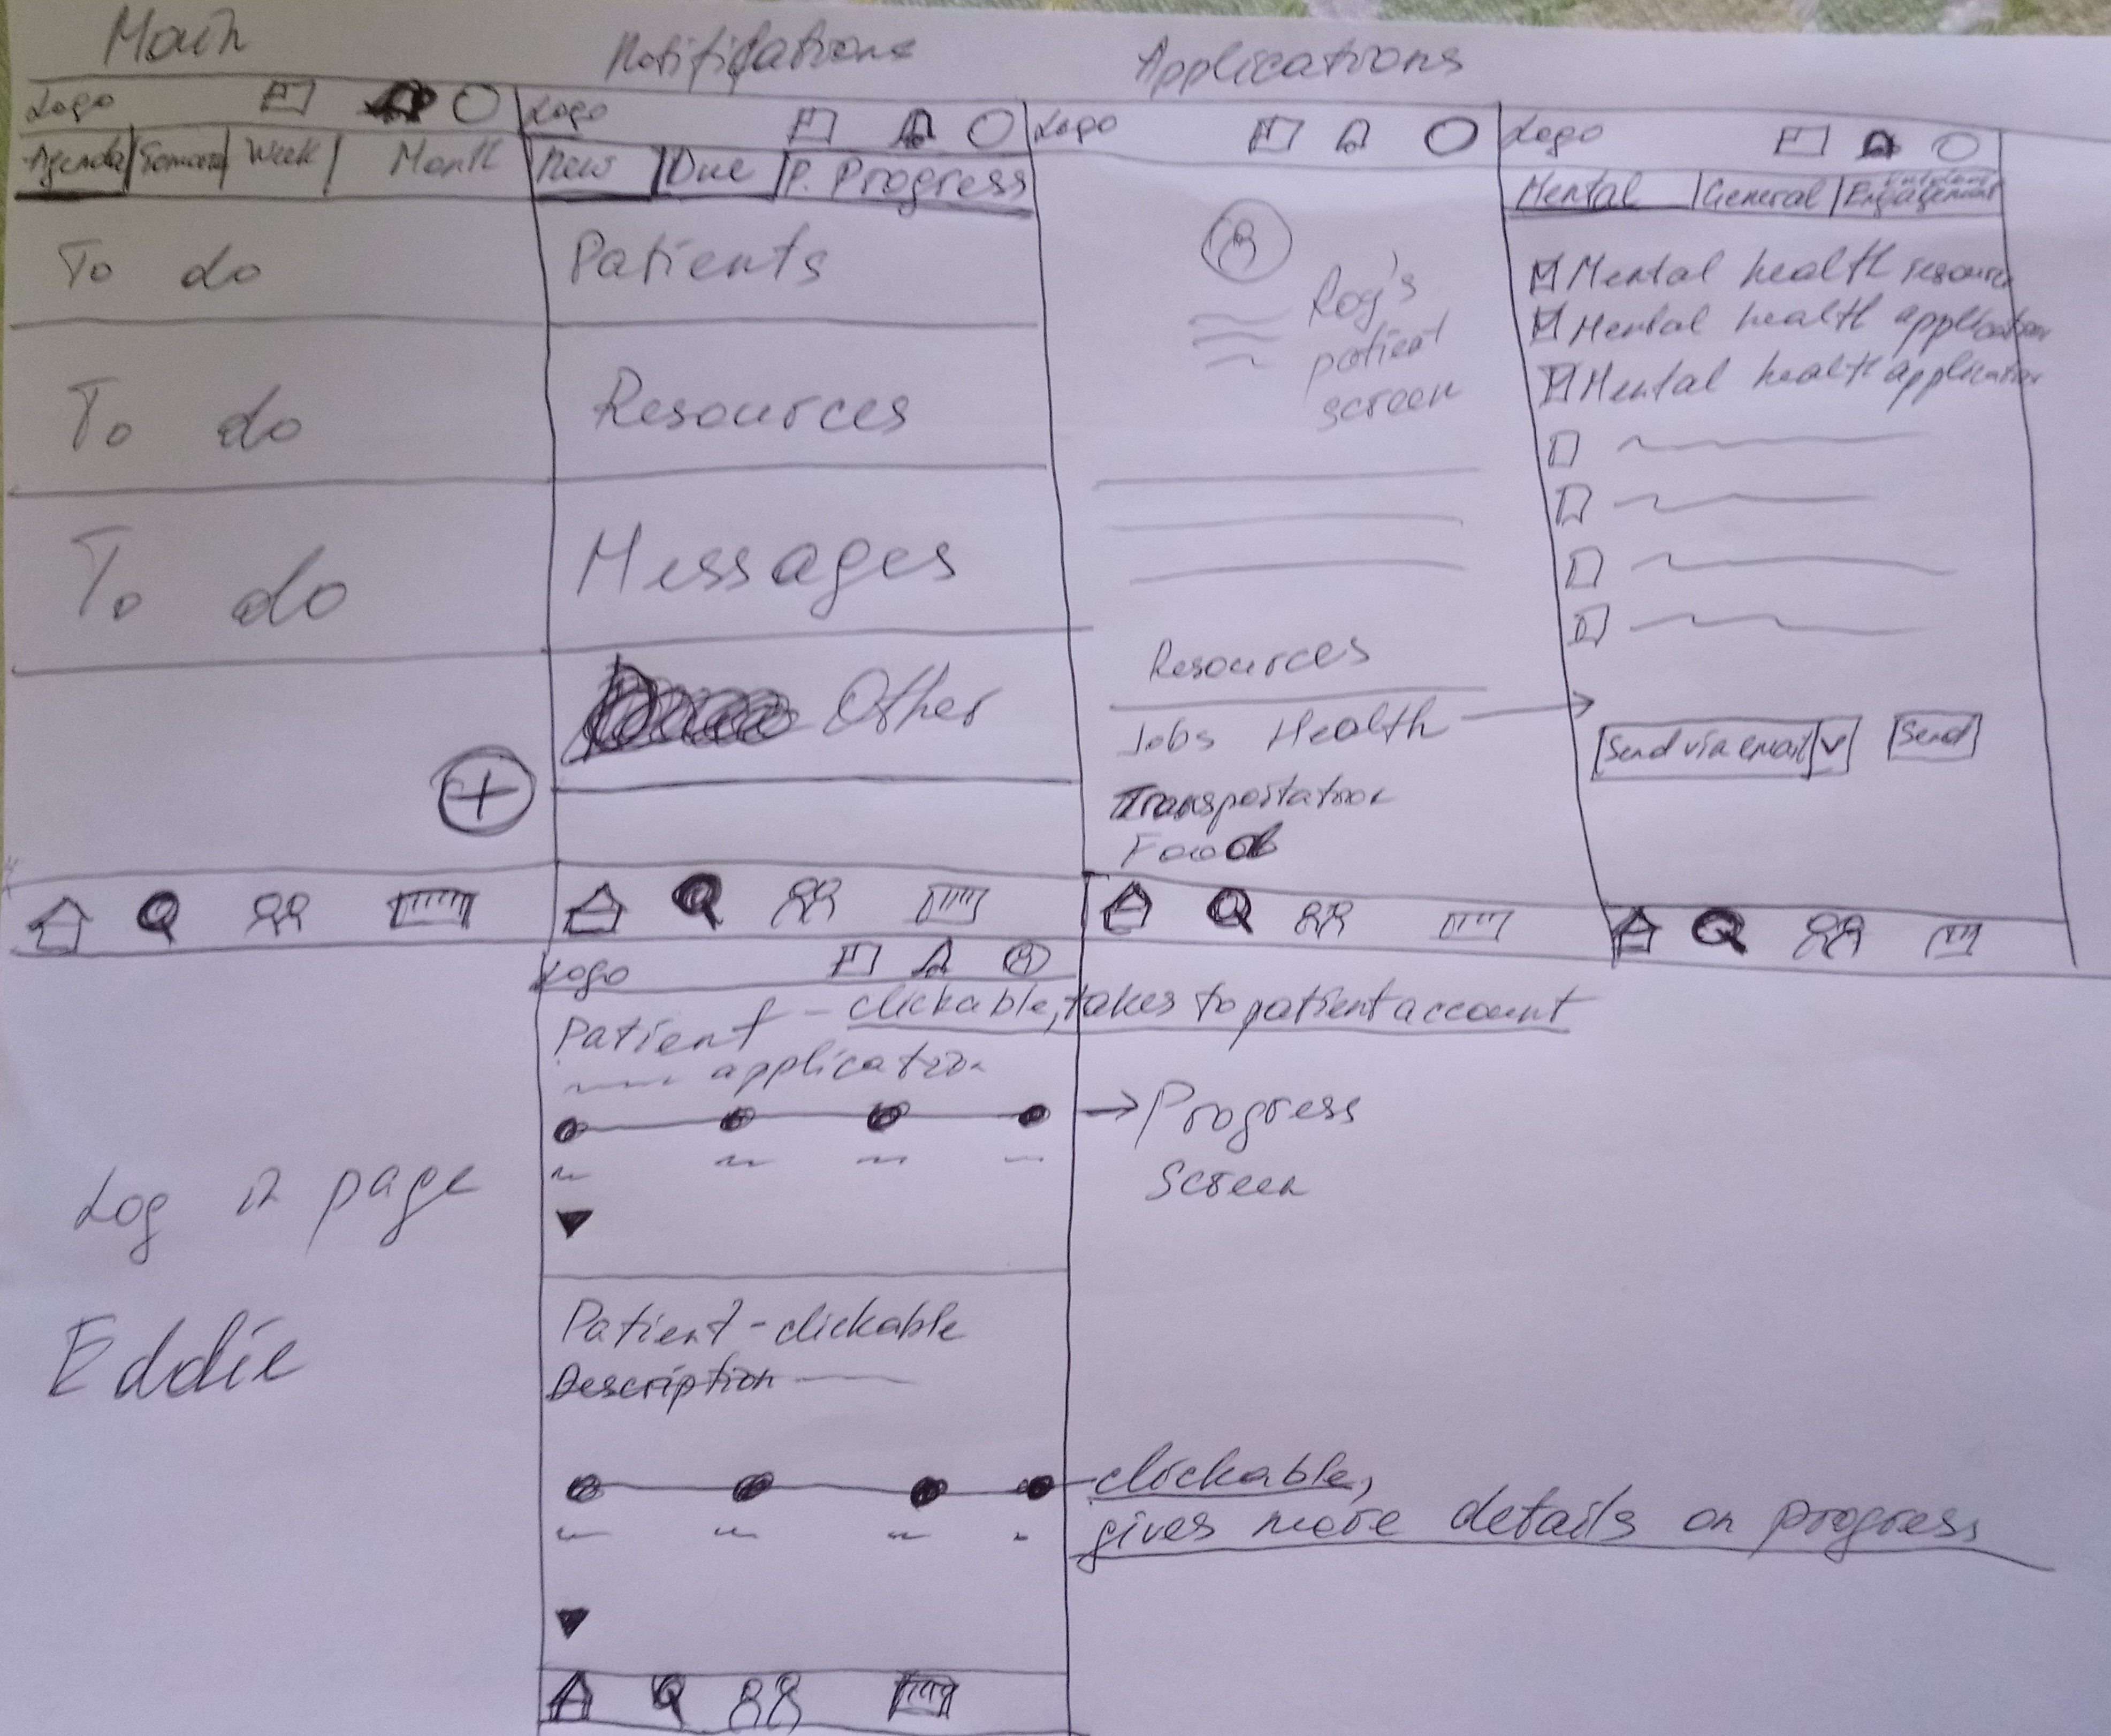 Main
Logo
Agenda Tomorrow Week Month
To do
To do
To do
Notifications
Logo
New Due P. Progress
Patients
Resources
Messages
Other
Applications
Logo
Roy's
patient
screen
Resources
Jobs Health
Transportation
Food
Logo
Mental General Engagement
Mental health resource
Mental health application
Mental health application
Send via email Send
Logo
Patient - clickable, takes to patient account
application
Progress
Screen
Patient - clickable
Description
clickable,
gives more details on progress
Log in page
Eddie